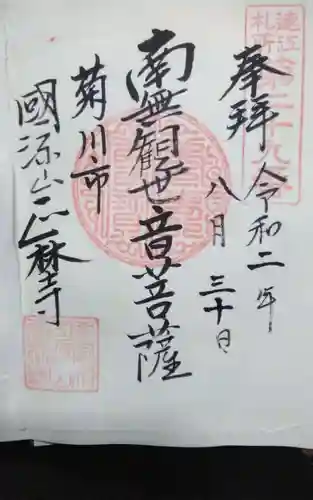 遠江
札所
第二十九番
奉拝
令和二年
八月三十日
南無観世音菩薩
菊川市
國源山正林寺